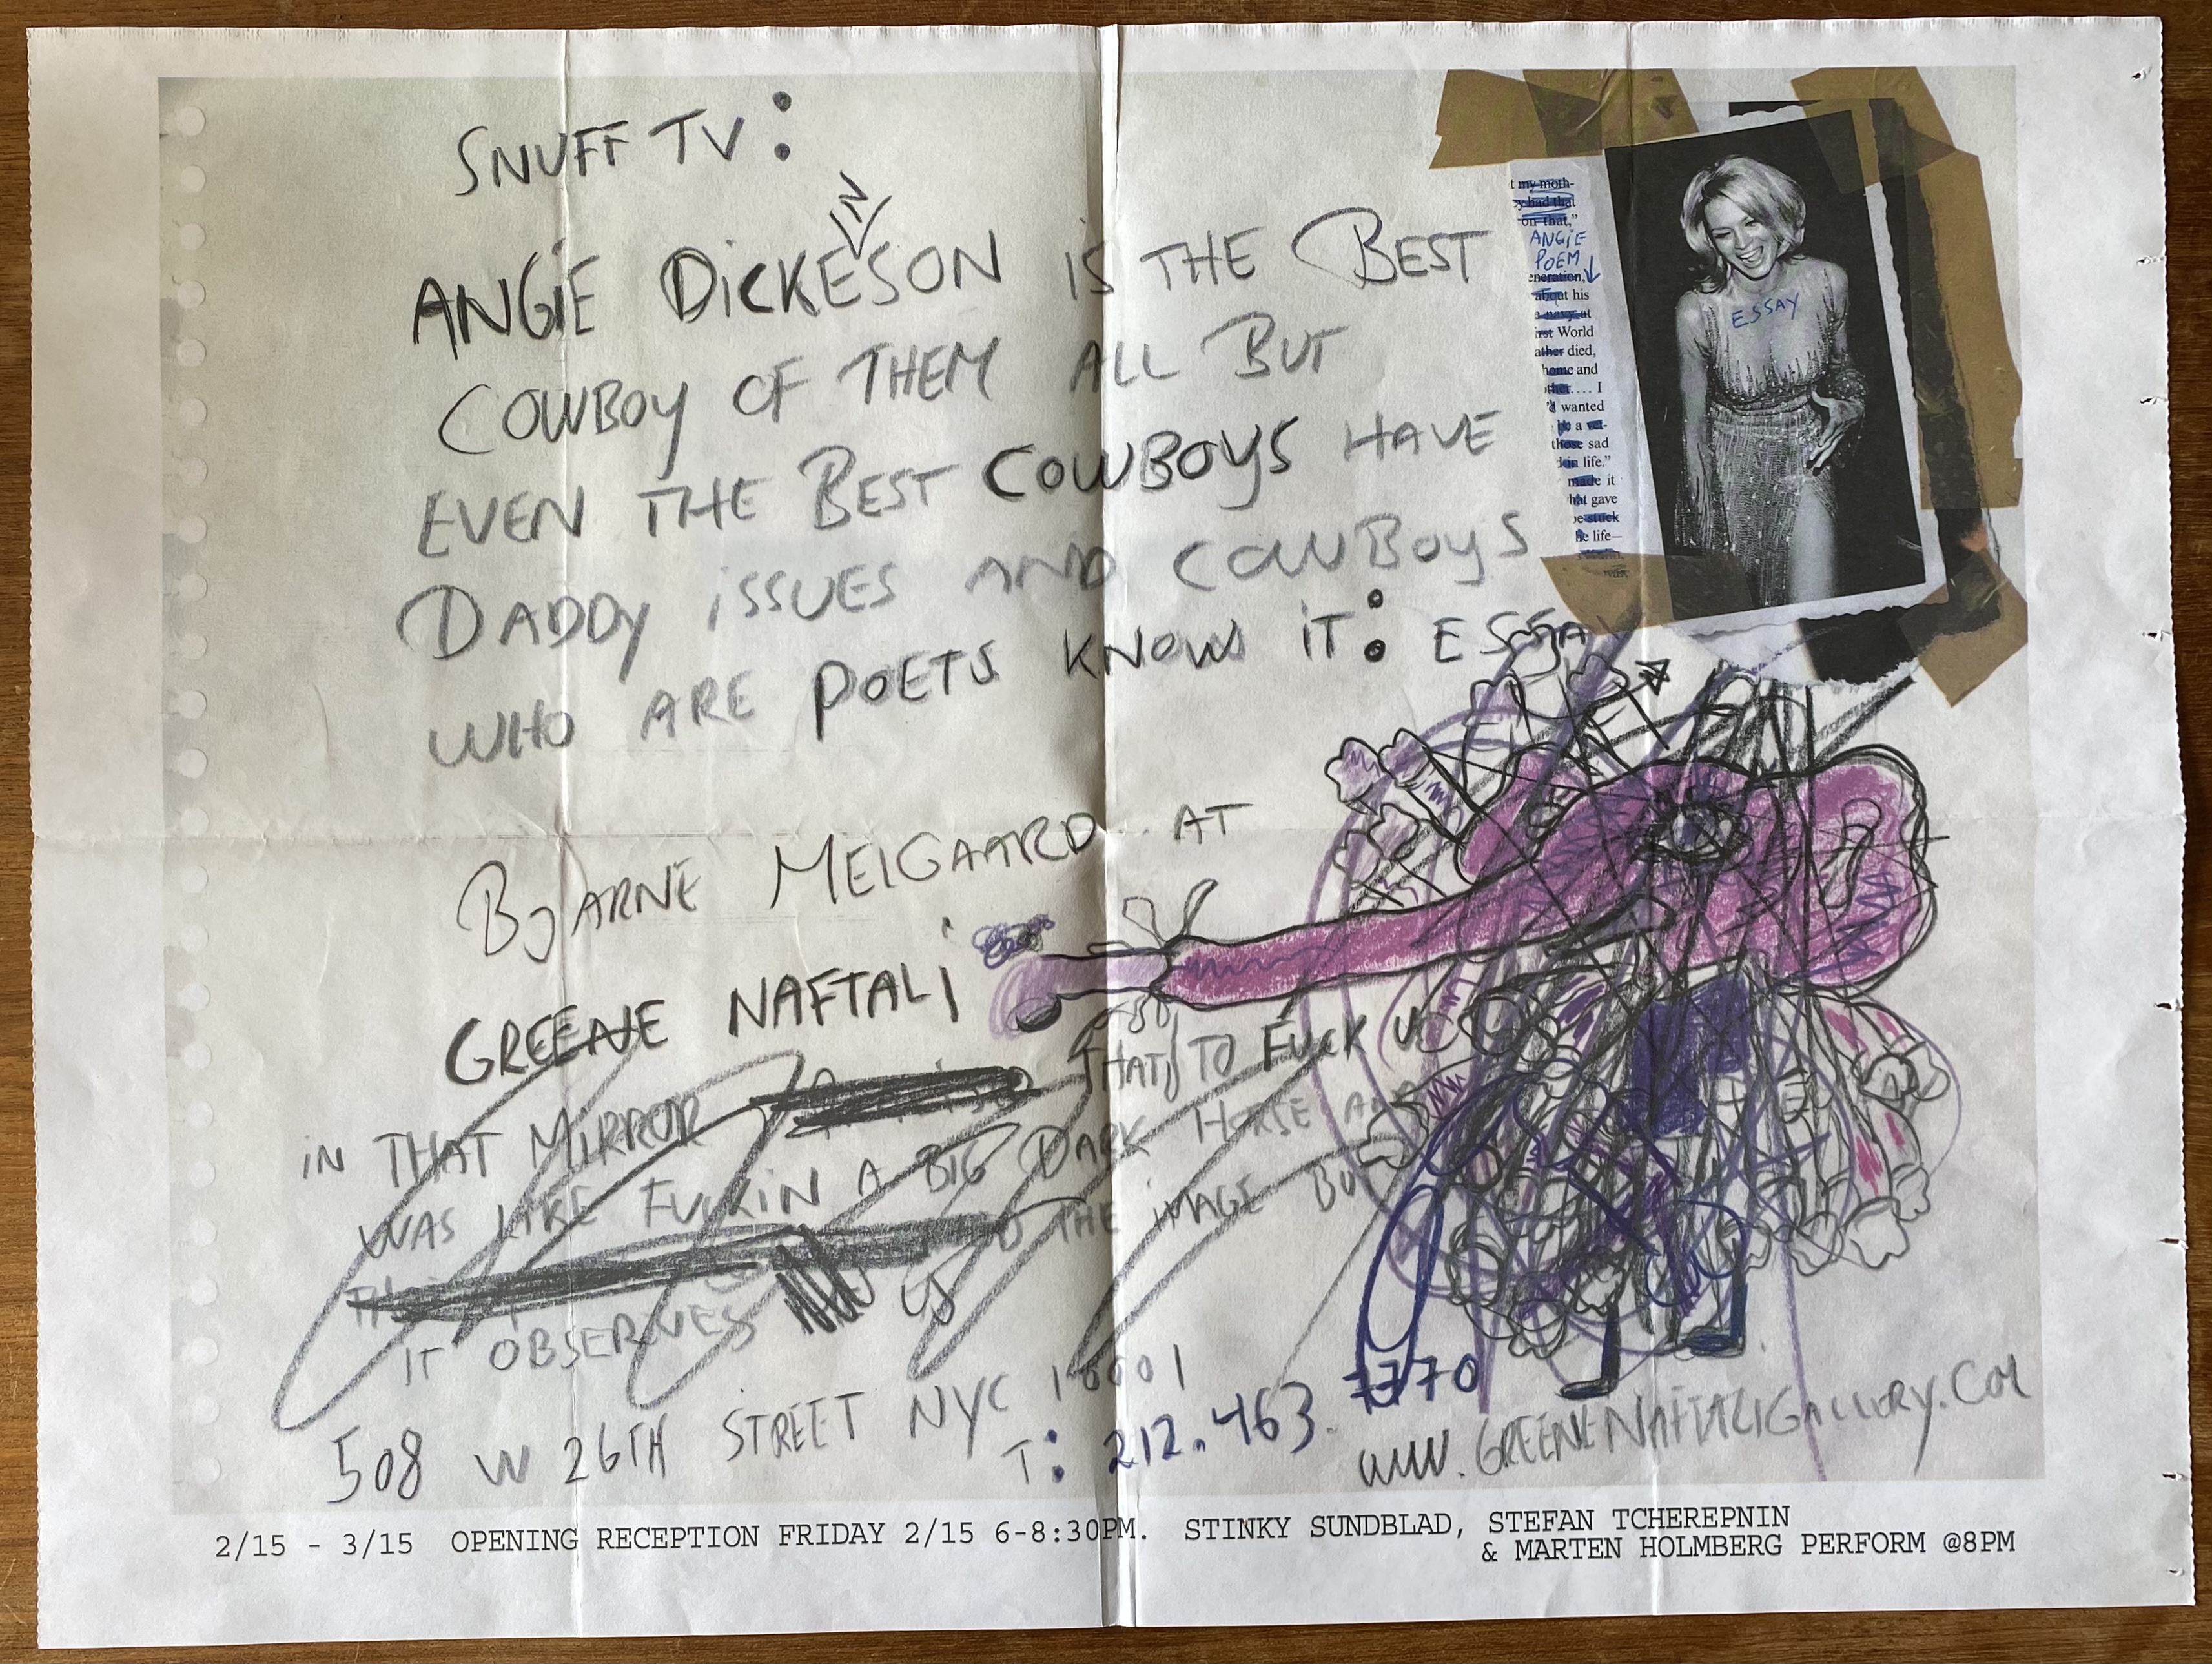 SNUFF TV:
N
ANGIE DICKESON IS THE BEST
COWBOY OF THEM ALL BUT
EVEN THE BEST COWBOYS HAVE
DADDY ISSUES AND COWBOYS
WHO ARE POETS KNOW IT: ESSA
t my moth-
y had that
on that,"
ANGIE
POEM
eneration,
about his
a navy at
irst World
ather died,
home and
other.... I
'd wanted
be a vet-
those sad
in life."
made it
hat gave
be stuck
he life—
ESSAY
BJARNE MELGAARD AT
GREENE NAFTALI
IN THAT MIRROR THAT TO FUCK
WAS LIKE FUCKIN A BIG DARK HORSE AND
THE IMAGE BUT
IT OBSERVES US
508 W 26TH STREET NYC 10001
T: 212.463.7770
WWW.GREENENAFTALIGALLERY.COM
2/15 - 3/15 OPENING RECEPTION FRIDAY 2/15 6-8:30PM. STINKY SUNDBLAD, STEFAN TCHEREPNIN
& MARTEN HOLMBERG PERFORM @8PM